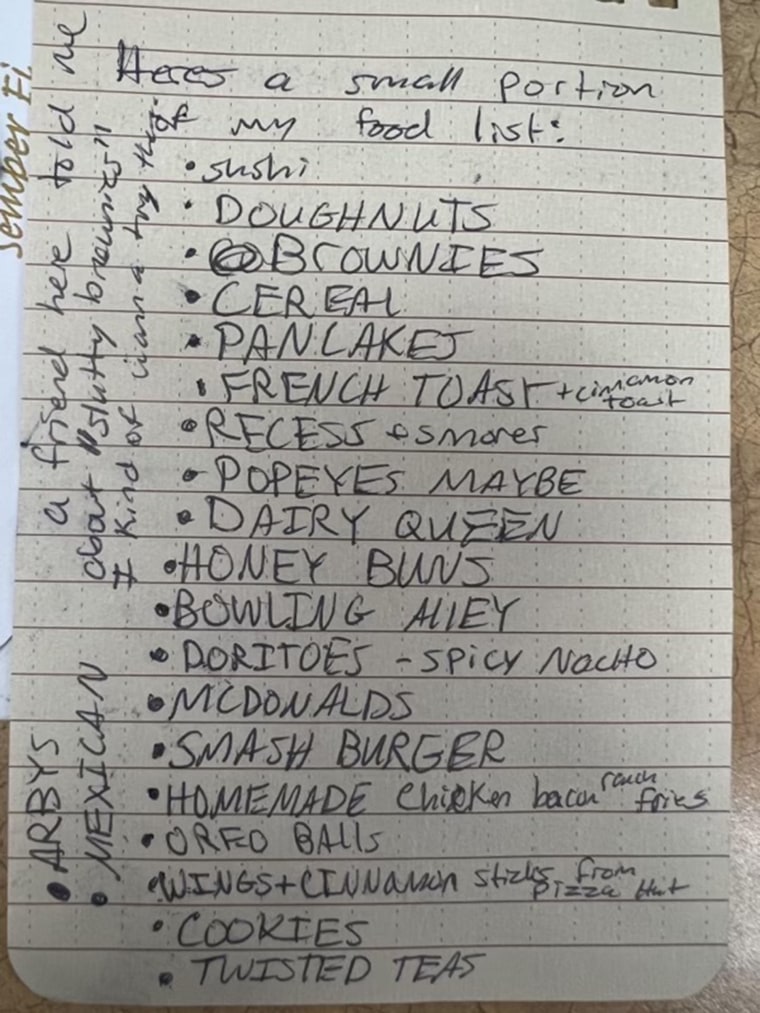 Heres a small portion
of my food list:
• sushi
• DOUGHNUTS
• BROWNIES
• CEREAL
• PANCAKES
• FRENCH TOAST + cinnamon
toast
• RECESS + smores
• POPEYES MAYBE
• DAIRY QUEEN
• HONEY BUNS
• BOWLING AllEY
• DORITOES - SPICY NACHO
• MCDONALDS
• SMASH BURGER
• HOMEMADE Chicken bacon ranch fries
• OREO BAlls
• WINGS + CINNamon sticks from
Pizza Hut
• COOKIES
• TWISTED TEAS
• ARBYS
• MEXICAN
a friend here told me
about "slutty brownies"
I kind of wanna try that
Semper Fi